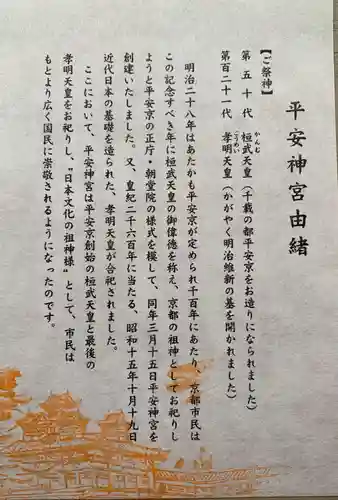 平安神宮由緒
【ご祭神】
第五十代 桓武天皇(千載の都平安京をお造りになられました)
第百二十一代 孝明天皇(かがやく明治維新の基を開かれました)
明治二十八年はあたかも平安京が定められ千百年にあたり、京都市民は
この記念すべき年に桓武天皇の御偉徳を称え、京都の祖神としてお祀りし
ようと平安京の正庁・朝堂院の様式を模して、同年三月十五日平安神宮を
創建いたしました。又、皇紀二千六百年に当たる、昭和十五年十月十九日
近代日本の基礎を造られた、孝明天皇が合祀されました。
ここにおいて、平安神宮は平安京創始の桓武天皇と最後の
孝明天皇をお祀りし、"日本文化の祖神様"として、市民は
もとより広く国民に崇敬されるようになったのです。